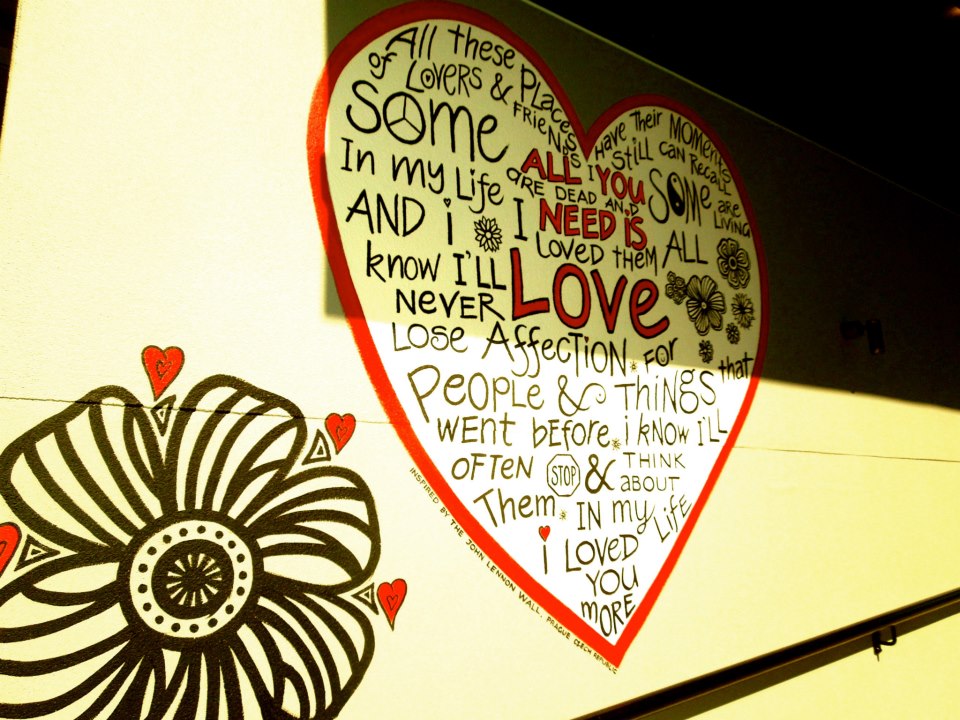 All these Places
have their MOMENTS
of LOVERS & FRIENDS I still can RECALL
SOME are DEAD AND SOMe are LIVING
In my Life I LOVED them ALL
ALL YOU
NEED iS
LOVe
AND i
know I'LL
NEVER
LOSE AffecTiON FOR
PEOPLE & THiNGS that
WENT bEfore i kNOW I'LL
OFTEN STOP & THINK
ABOUT
Them IN my LifE
i LOVED
YOU
mORE
INSPIRED BY THE JOHN LENNON WALL, PRAGUE CZECH REPUBLIC